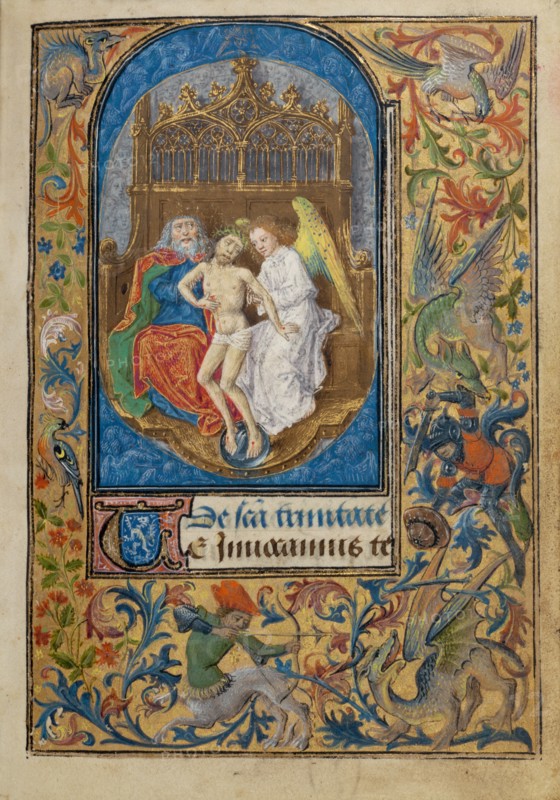 De scā trinitate
TE Inuocamus te